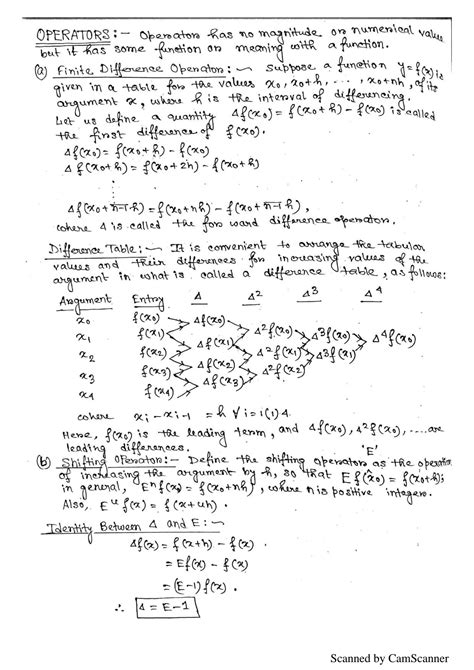 OPERATORS:- Operators has no magnitude or numerical value
but it has some function or meaning with a function.
(a) Finite Difference Operator:- Suppose a function y=f(x) is
given in a table for the values x₀, x₀+h, ..., x₀+nh, of its
argument x, where h is the interval of differencing.
Let us define a quantity Δf(x₀) = f(x₀+h) - f(x₀) is called
the first difference of f(x₀).
Δf(x₀) = f(x₀+h) - f(x₀)
Δf(x₀+h) = f(x₀+2h) - f(x₀+h)
⋮
Δf(x₀+n-1·h) = f(x₀+nh) - f(x₀+n-1h),
where Δ is called the forward difference operator.
Difference Table:- It is convenient to arrange the tabular
values and their differences for increasing values of the
argument in what is called a difference table, as follows:
Argument Entry Δ Δ² Δ³ Δ⁴
x₀ f(x₀) Δf(x₀)
x₁ f(x₁) Δf(x₁) Δ²f(x₀) Δ³f(x₀) Δ⁴f(x₀)
x₂ f(x₂) Δf(x₂) Δ²f(x₁) Δ³f(x₁)
x₃ f(x₃) Δf(x₃) Δ²f(x₂)
x₄ f(x₄)
where xᵢ - xᵢ₋₁ = h ∀ i = 1(1)4.
Here, f(x₀) is the leading term, and Δf(x₀), Δ²f(x₀), .... are
leading differences.
'E'
(b) Shifting Operator:- Define the shifting operator as the operation
of increasing the argument by h, so that Ef(x₀) = f(x₀+h);
in general, Eⁿf(x) = f(x₀+nh), where n is positive integer.
Also, Eᵘf(x) = f(x+uh).
Identity Between Δ and E:-
Δf(x) = f(x+h) - f(x)
= Ef(x) - f(x)
= (E-1)f(x).
∴ Δ = E-1
Scanned by CamScanner